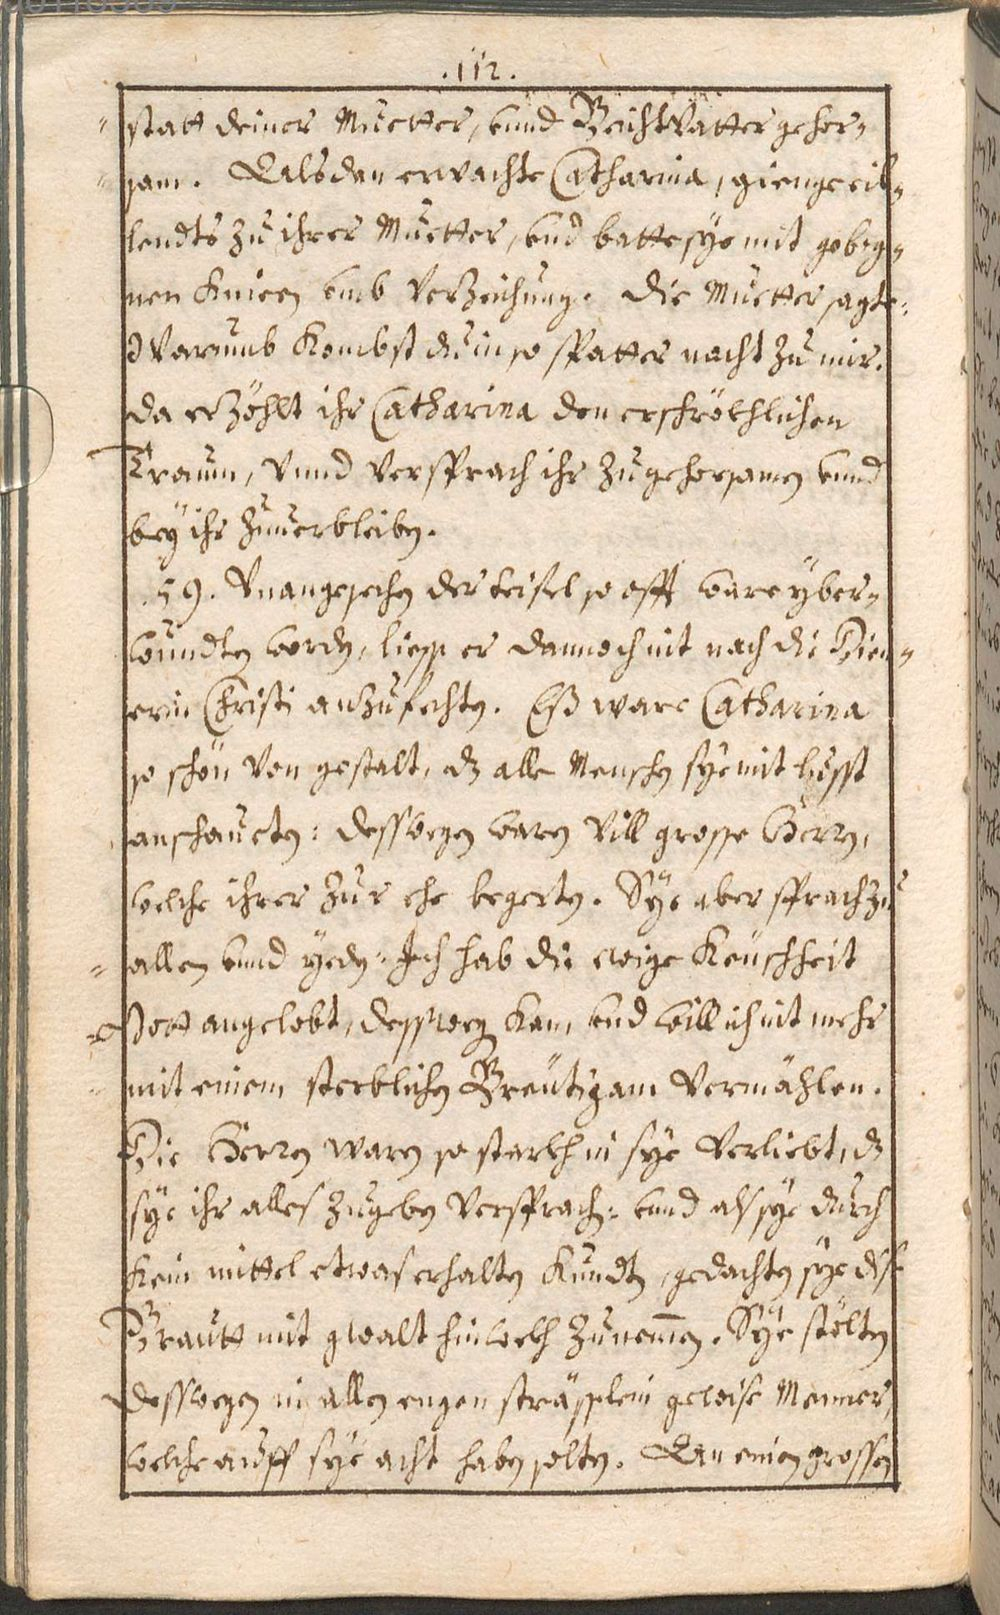 .112.
statt deiner Muetter, vnnd Beichtvatter gehor¬
sam. Alsdan erwachte Catharina, gienge eil¬
lendts zu ihrer Muetter, vnd batte sÿe mit gebog¬
nen Knieen vmb Verzeichung. die Muetter sagte:
Warumb kombst du in so spatter nacht zu mir.
da erzöhlt ihr Catharina den erschröckhlichen
Traum, vnnd versprach ihr zu gehorsamen vnnd
beÿ ihr zuuerbleiben.
59. Vnangesechen der teifel so offt ware yber¬
wundten worden, liesse er dannoch nit nach die Dien¬
erin Christi anzufechten. Es ware Catharina
so schön von gestalt, dz alle Menschen sÿe mit lusst
anschaueten: desswegen waren vill grosse Herren,
welche ihrer zur ehe begerten. Sÿe aber sprach zu
allen vnnd ÿeden: Jch hab die ewige Keuschheit
Gott angelobt, dessweg kan, vnd will ich nit mehr
mit einem sterblichen Breutigam vermählen.
Die Herren waren so starkh in sÿe verliebt, dz
sÿe ihr alles zugeben versprachen: vnnd als sÿe durch
kein mittel etwas erhalten kundten, gedachten sÿe dise
Brautt mit gwalt hinwekh zunemmen. Sÿe stölten
desswegen in allen engen strässlein gewise Menner,
welche auff sÿe acht haben solten. An einen grossen